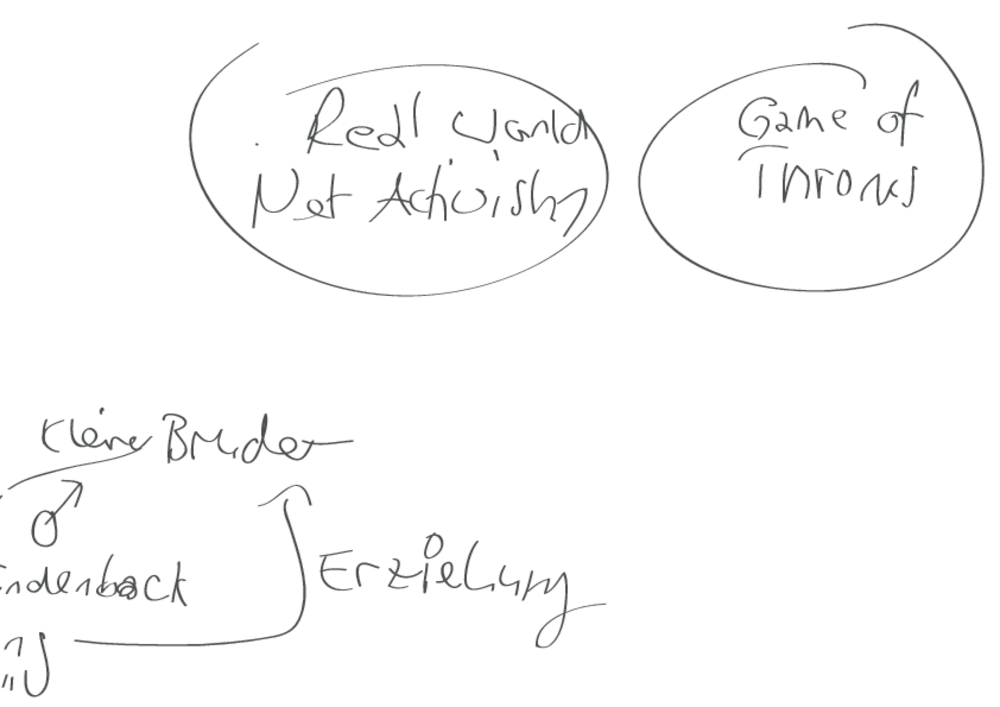 Real World
Not Activism
Game of
Thrones
Kleine Bruder
Erziehung